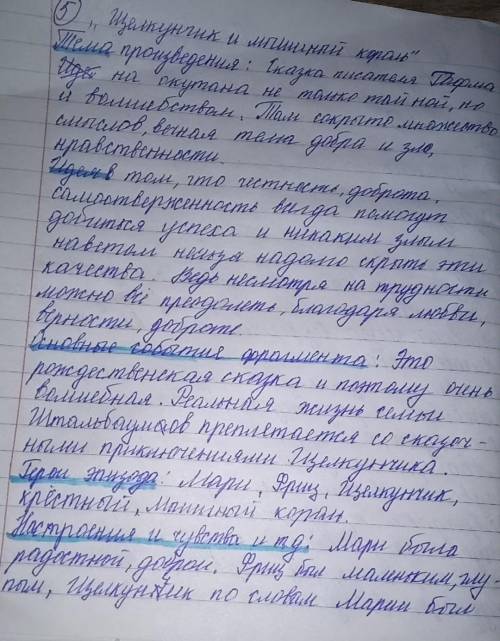 5
„Щелкунчик и мышиный король"
Тема произведения: Сказка писателя Гофма
на окутана не только тайной, но
и волшебством. Там сокрыто множество
смыслов, вечная тема добра и зла,
нравственности.
Идея в том, что честность, доброта,
самоотверженность всегда помогут
добиться успеха и никаким злым
наветам нельзя надолго скрыть эти
качества. Ведь несмотря на трудности
можно всё преодолеть, благодаря любви,
верности, доброте.
Основные события фрагмента: Это
рождественская сказка и поэтому очень
волшебная. Реальная жизнь семьи
Штальбаумов преплетается со сказоч-
ными приключениями Щелкунчика.
Герои эпизода: Мари, Фриц, Щелкунчик,
крёстный, Мышиный король.
Настроения и чувства и тд: Мари была
радостной, доброй. Фриц был маленьким, глу-
пым, Щелкунчик по словам Марии был